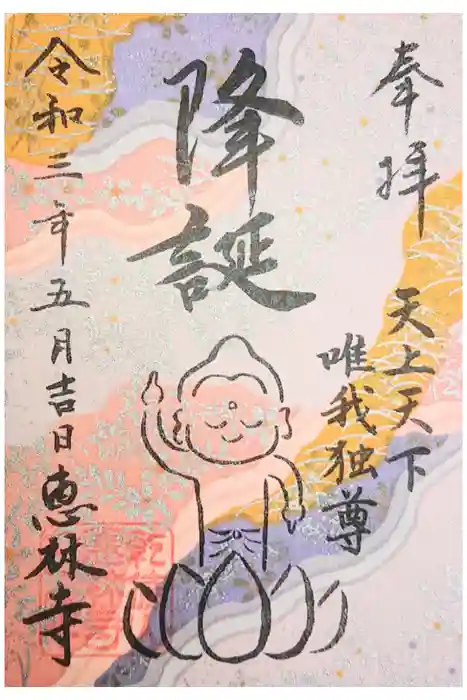 奉拝
天上天下
唯我独尊
降誕
令和三年五月吉日恵林寺